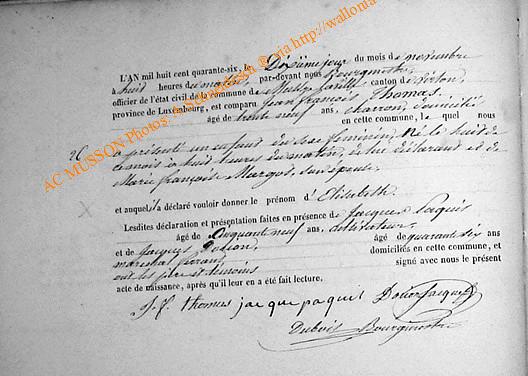 L'AN mil huit cent quarante-six, le Dixième jour du mois de novembre
à huit heures du matin, par-devant nous Bourgmestre
officier de l'état civil de la commune de canton de Virton,
province de Luxembourg, est comparu Jean françois Thomas,
âgé de trente neuf ans, charron, domicilié
en cette commune, le quel nous
26
a présenté un enfant du sexe féminin, Né le huit de
ce mois à huit heures du matin, de lui déclarant et de
Marie françoise Margot, son épouse
et auquel il a déclaré vouloir donner le prénom d'Elisabeth.
Lesdites déclaration et présentation faites en présence de Jacques Paquis
âgé de Cinquante neuf ans, cultivateur,
et de Jacques âgé de quarante six ans
maréchal ferant, domiciliés en cette commune, et
ont les père et témoins signé avec nous le présent
acte de naissance, après qu'il leur en a été fait lecture.
J. f. thomas jacque paquis Jacques
Dubois Bourgmestre
AC MUSSON Photos: http://wallonia